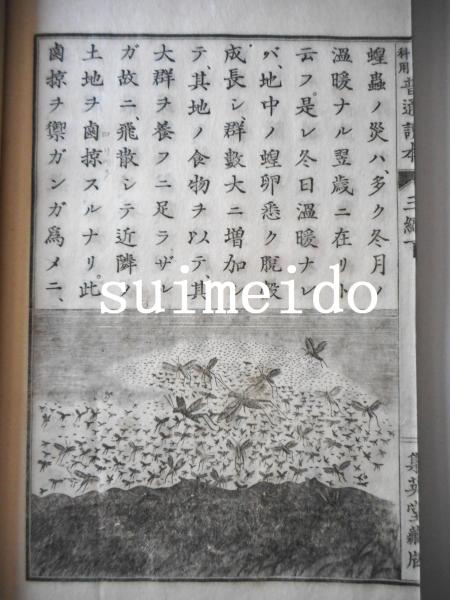 科用
普通讀本 三編下
集英堂藏版
蝗蟲ノ災ハ、多ク冬月ノ
溫暖ナル翌歲ニ在リト
云フ。是レ冬日溫暖ナレ
バ、地中ノ蝗卵悉ク脫殼
成長シ、群數大ニ增加シ
テ、其地ノ食物ヲ以テ、其
大群ヲ養フニ足ラザル
ガ故ニ、飛散シテ近隣
土地ヲ鹵掠スルナリ。此
鹵掠ヲ禦ガンガ爲メニ、
suimeido